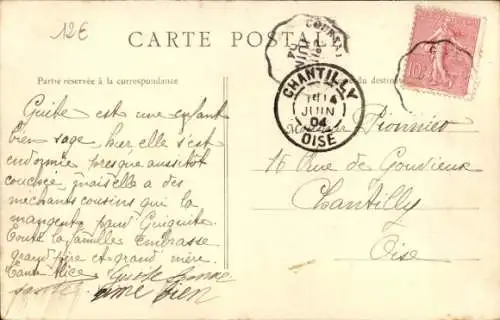 12€
CARTE POSTALE
Partie réservée à la correspondance
du destin
CHANTILLY
14
JUIN
04
OISE
10
Guite est une enfant
bien sage hier, elle s'est
endormie presque aussitôt
couchée, mais elle a des
méchants cousins qui la
mangent pauv Guiguite.
Toute la famille embrasse
grand père et grand mère.
Tante Alice Guite
aime bien
Monsieur Pionnier
16 Rue de Gouvieux
Chantilly
Oise